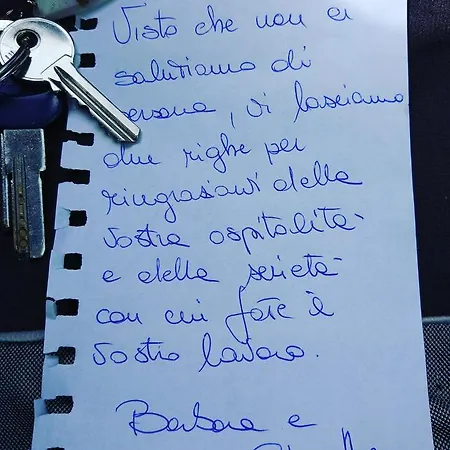 Visto che non ci
salutiamo di
persona, vi lasciamo
due righe per
ringraziarvi della
vostra ospitalità
e della serietà
con cui fate il
vostro lavoro.
Barbara e